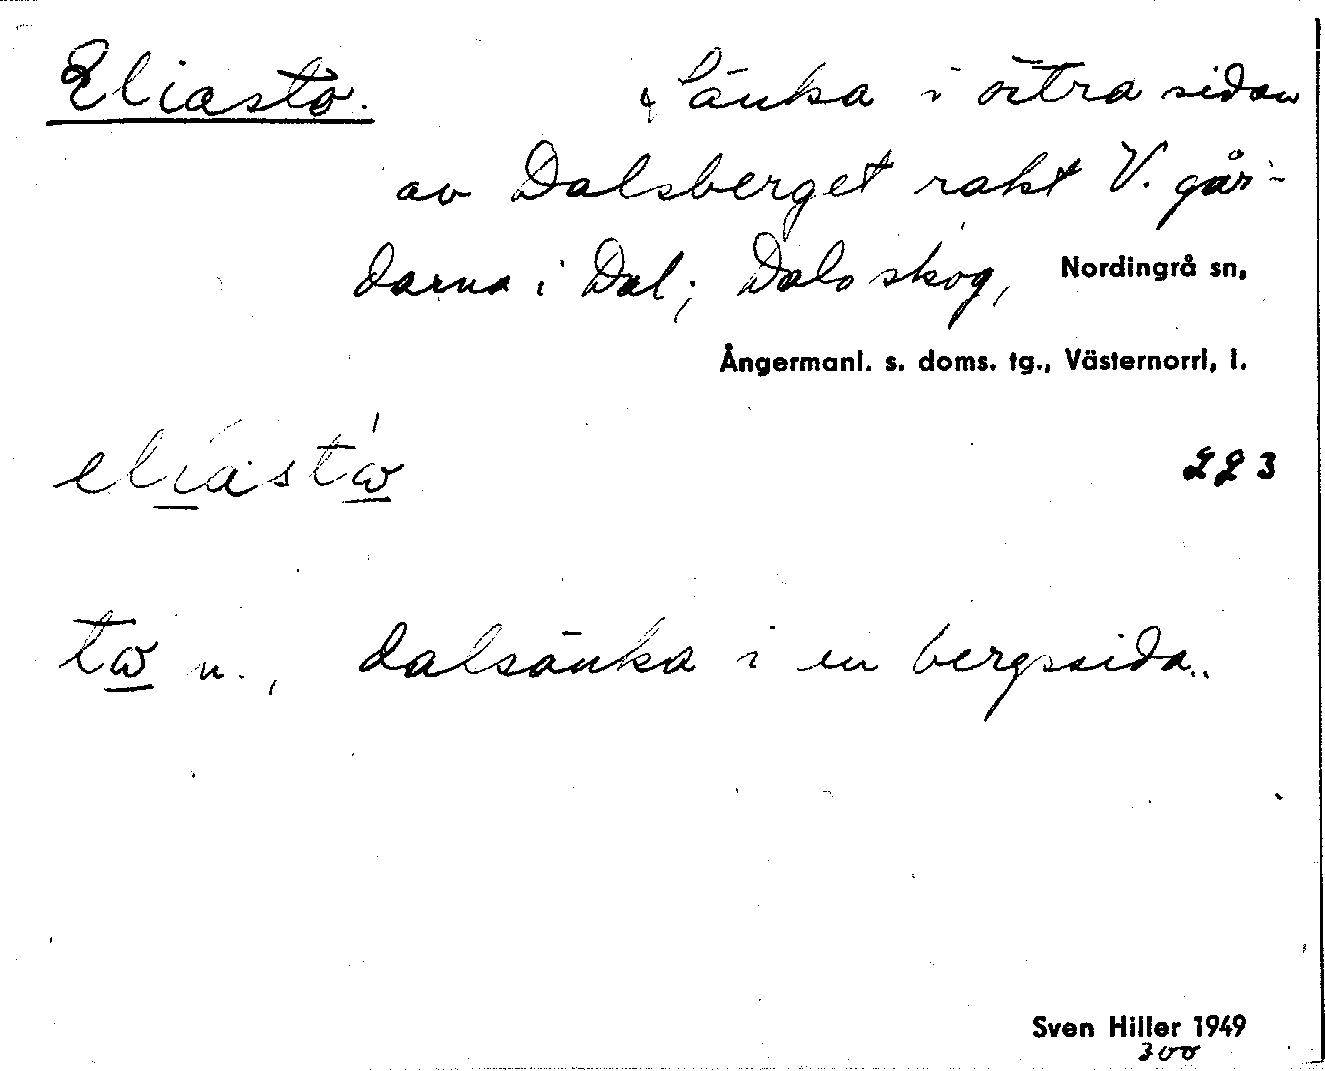 Eliasto. Sänka i östra sidan
av Dalsberget rakt V. går-
darna i Dal; Dals skog, Nordingrå sn,
Ångermanl. s. doms. tg., Västernorrl, l.
eliastω 223
tω n., dalsänka i en bergssida.
Sven Hiller 1949
300